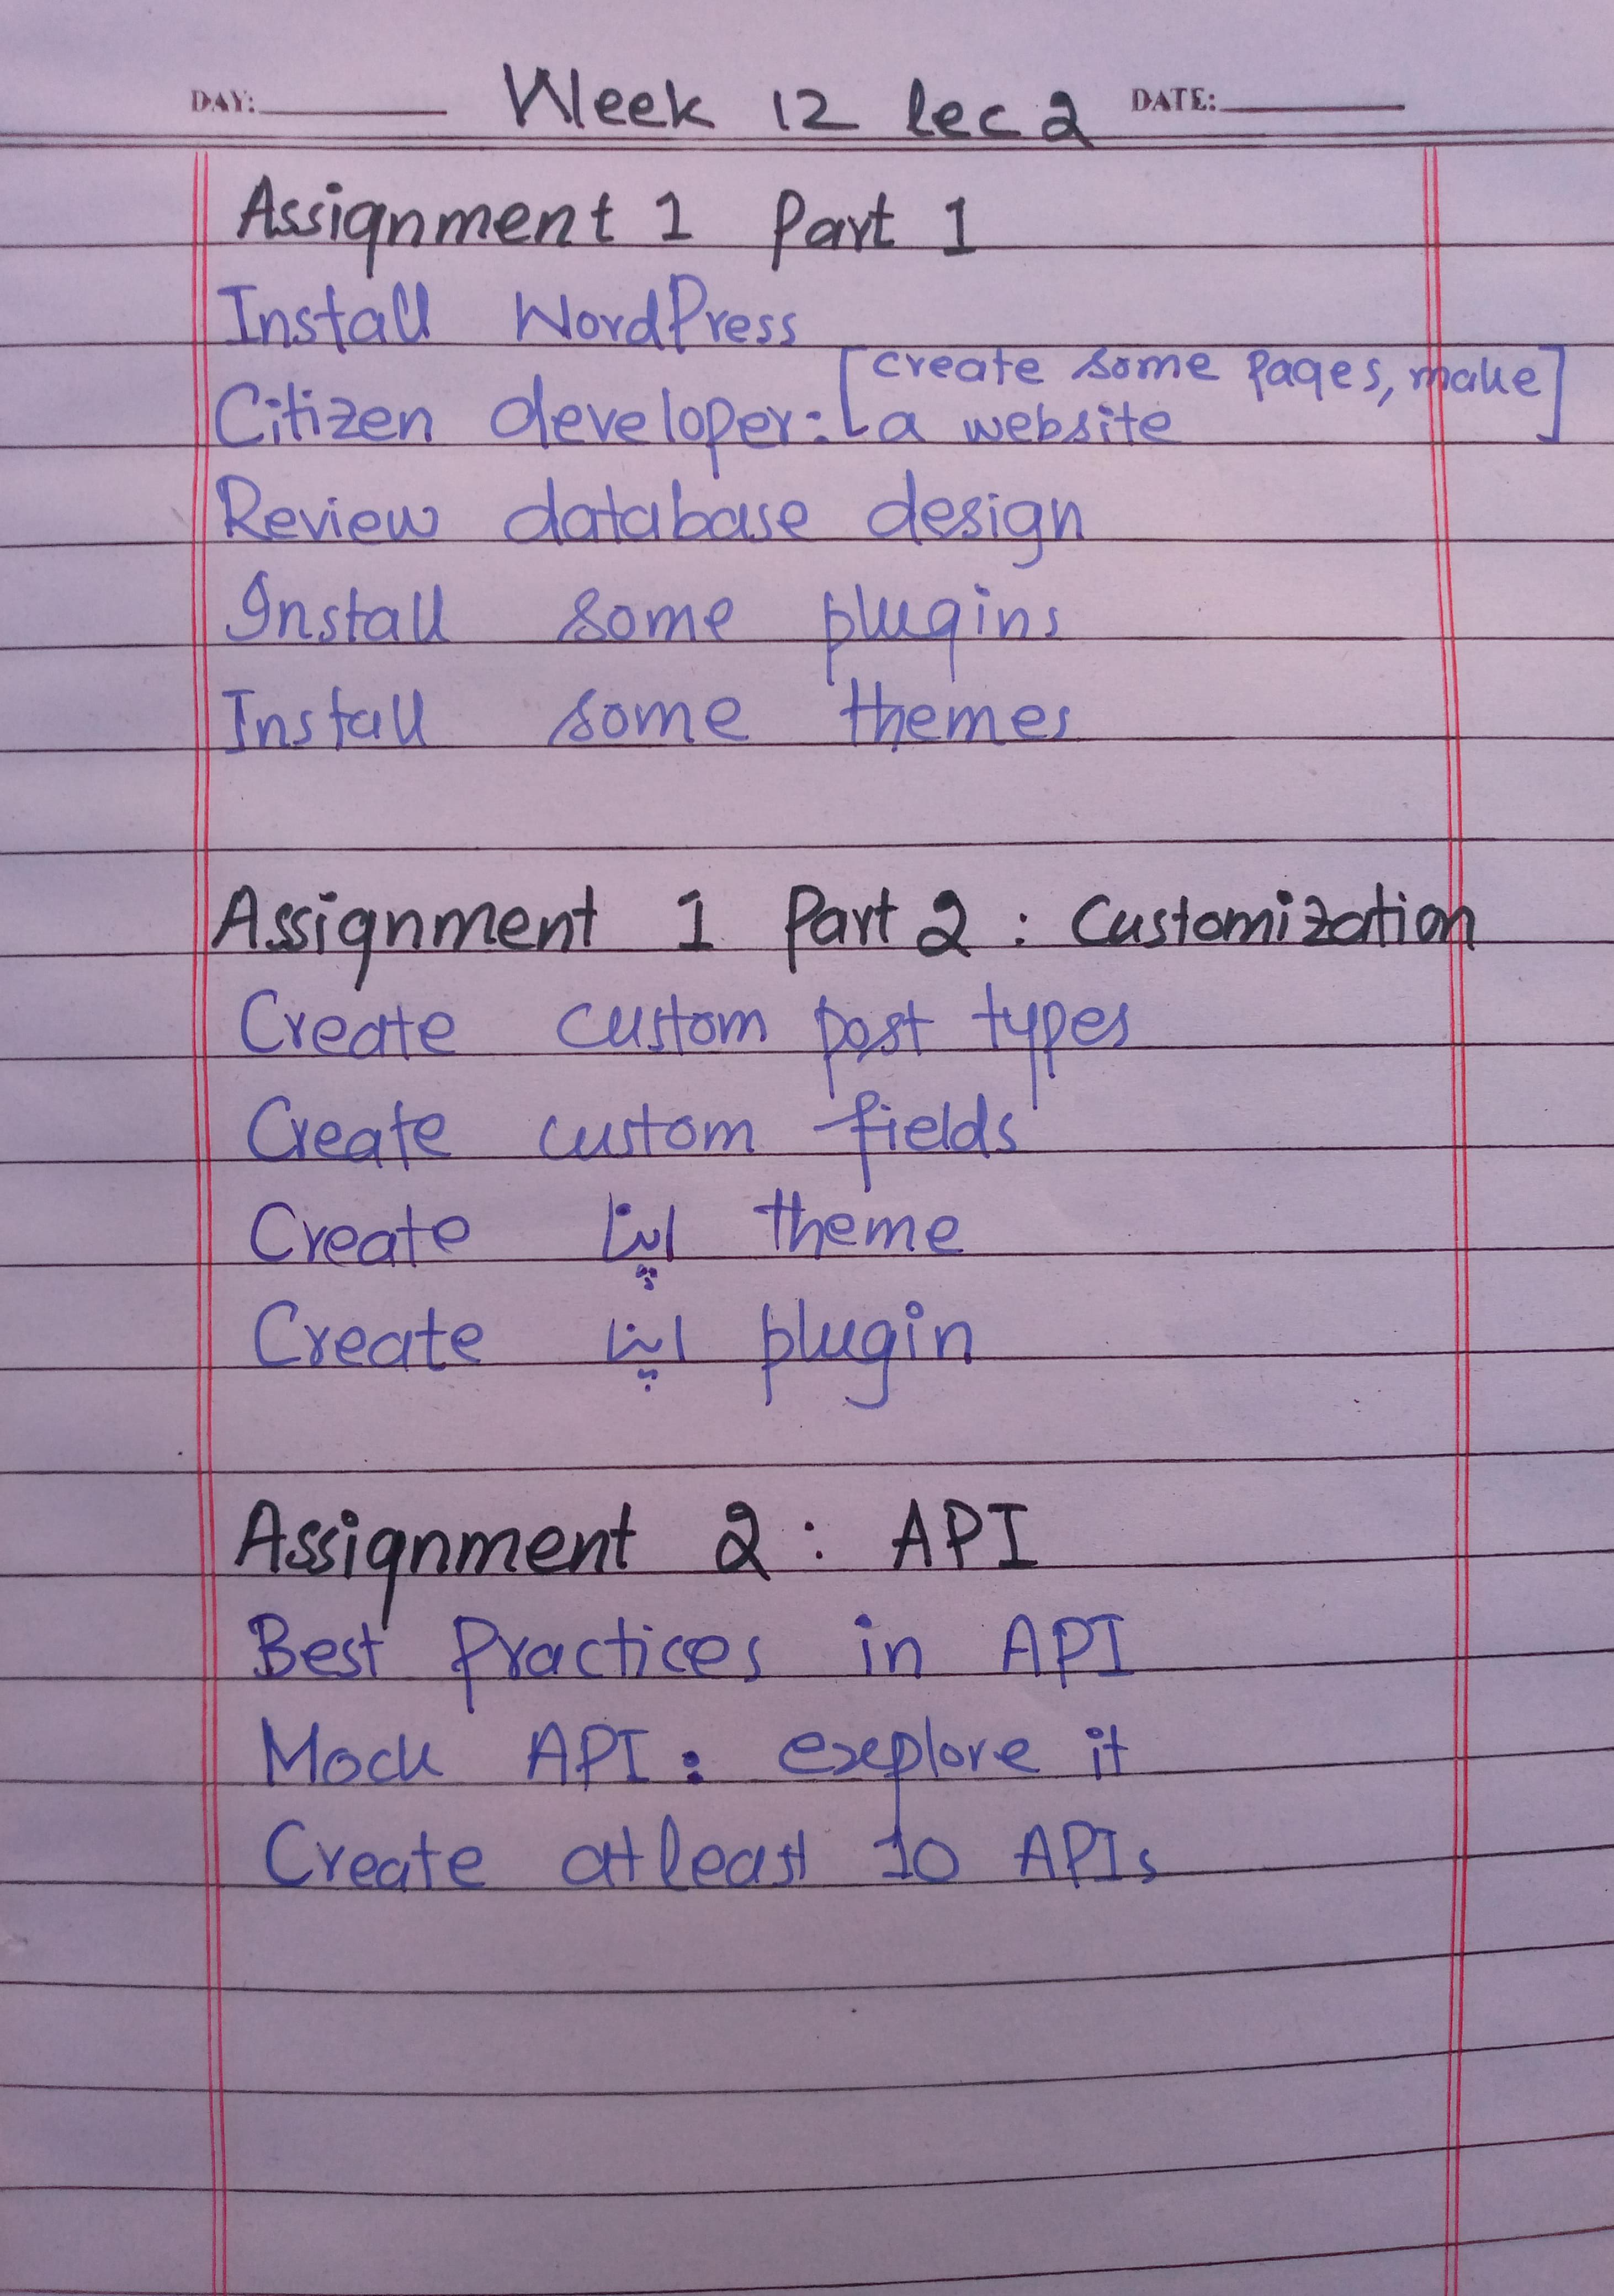 DAY: Week 12 lec 2 DATE:
Assignment 1 Part 1
Install WordPress
Citizen developer: [create some pages, make
a website]
Review database design
Install some plugins
Install some themes
Assignment 1 Part 2 : Customization
Create custom post types
Create custom fields
Create اپنا theme
Create اپنا plugin
Assignment 2 : API
Best Practices in API
Mock API : explore it
Create atleast 10 APIs